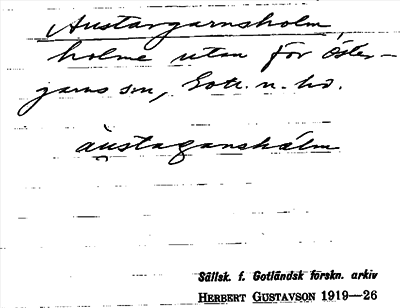 Austargarnsholm,
holme utan för Öster-
garns sn, Gotl. n. hd.
austaganshålm
Sällsk. f. Gotländsk förskn. arkiv
HERBERT GUSTAVSON 1919—26